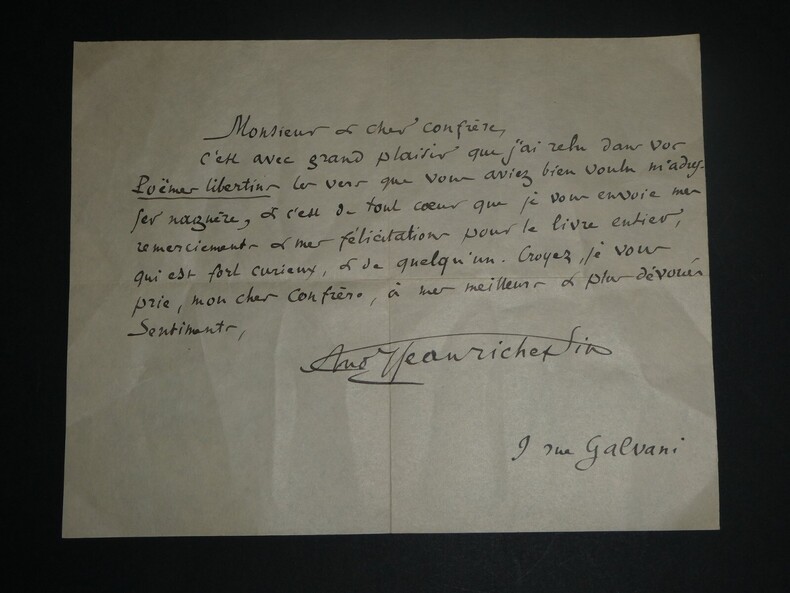 Monsieur & cher confrère,
c'est avec grand plaisir que j'ai relu dans vos
Poëmes libertins les vers que vous aviez bien voulu m'adres-
ser naguère, & c'est de tout cœur que je vous envoie mes
remerciements & mes félicitations pour le livre entier,
qui est fort curieux, & de quelqu'un. Croyez, je vous
prie, mon cher Confrère, à mes meilleurs & plus dévoués
Sentiments,
9 rue Galvani